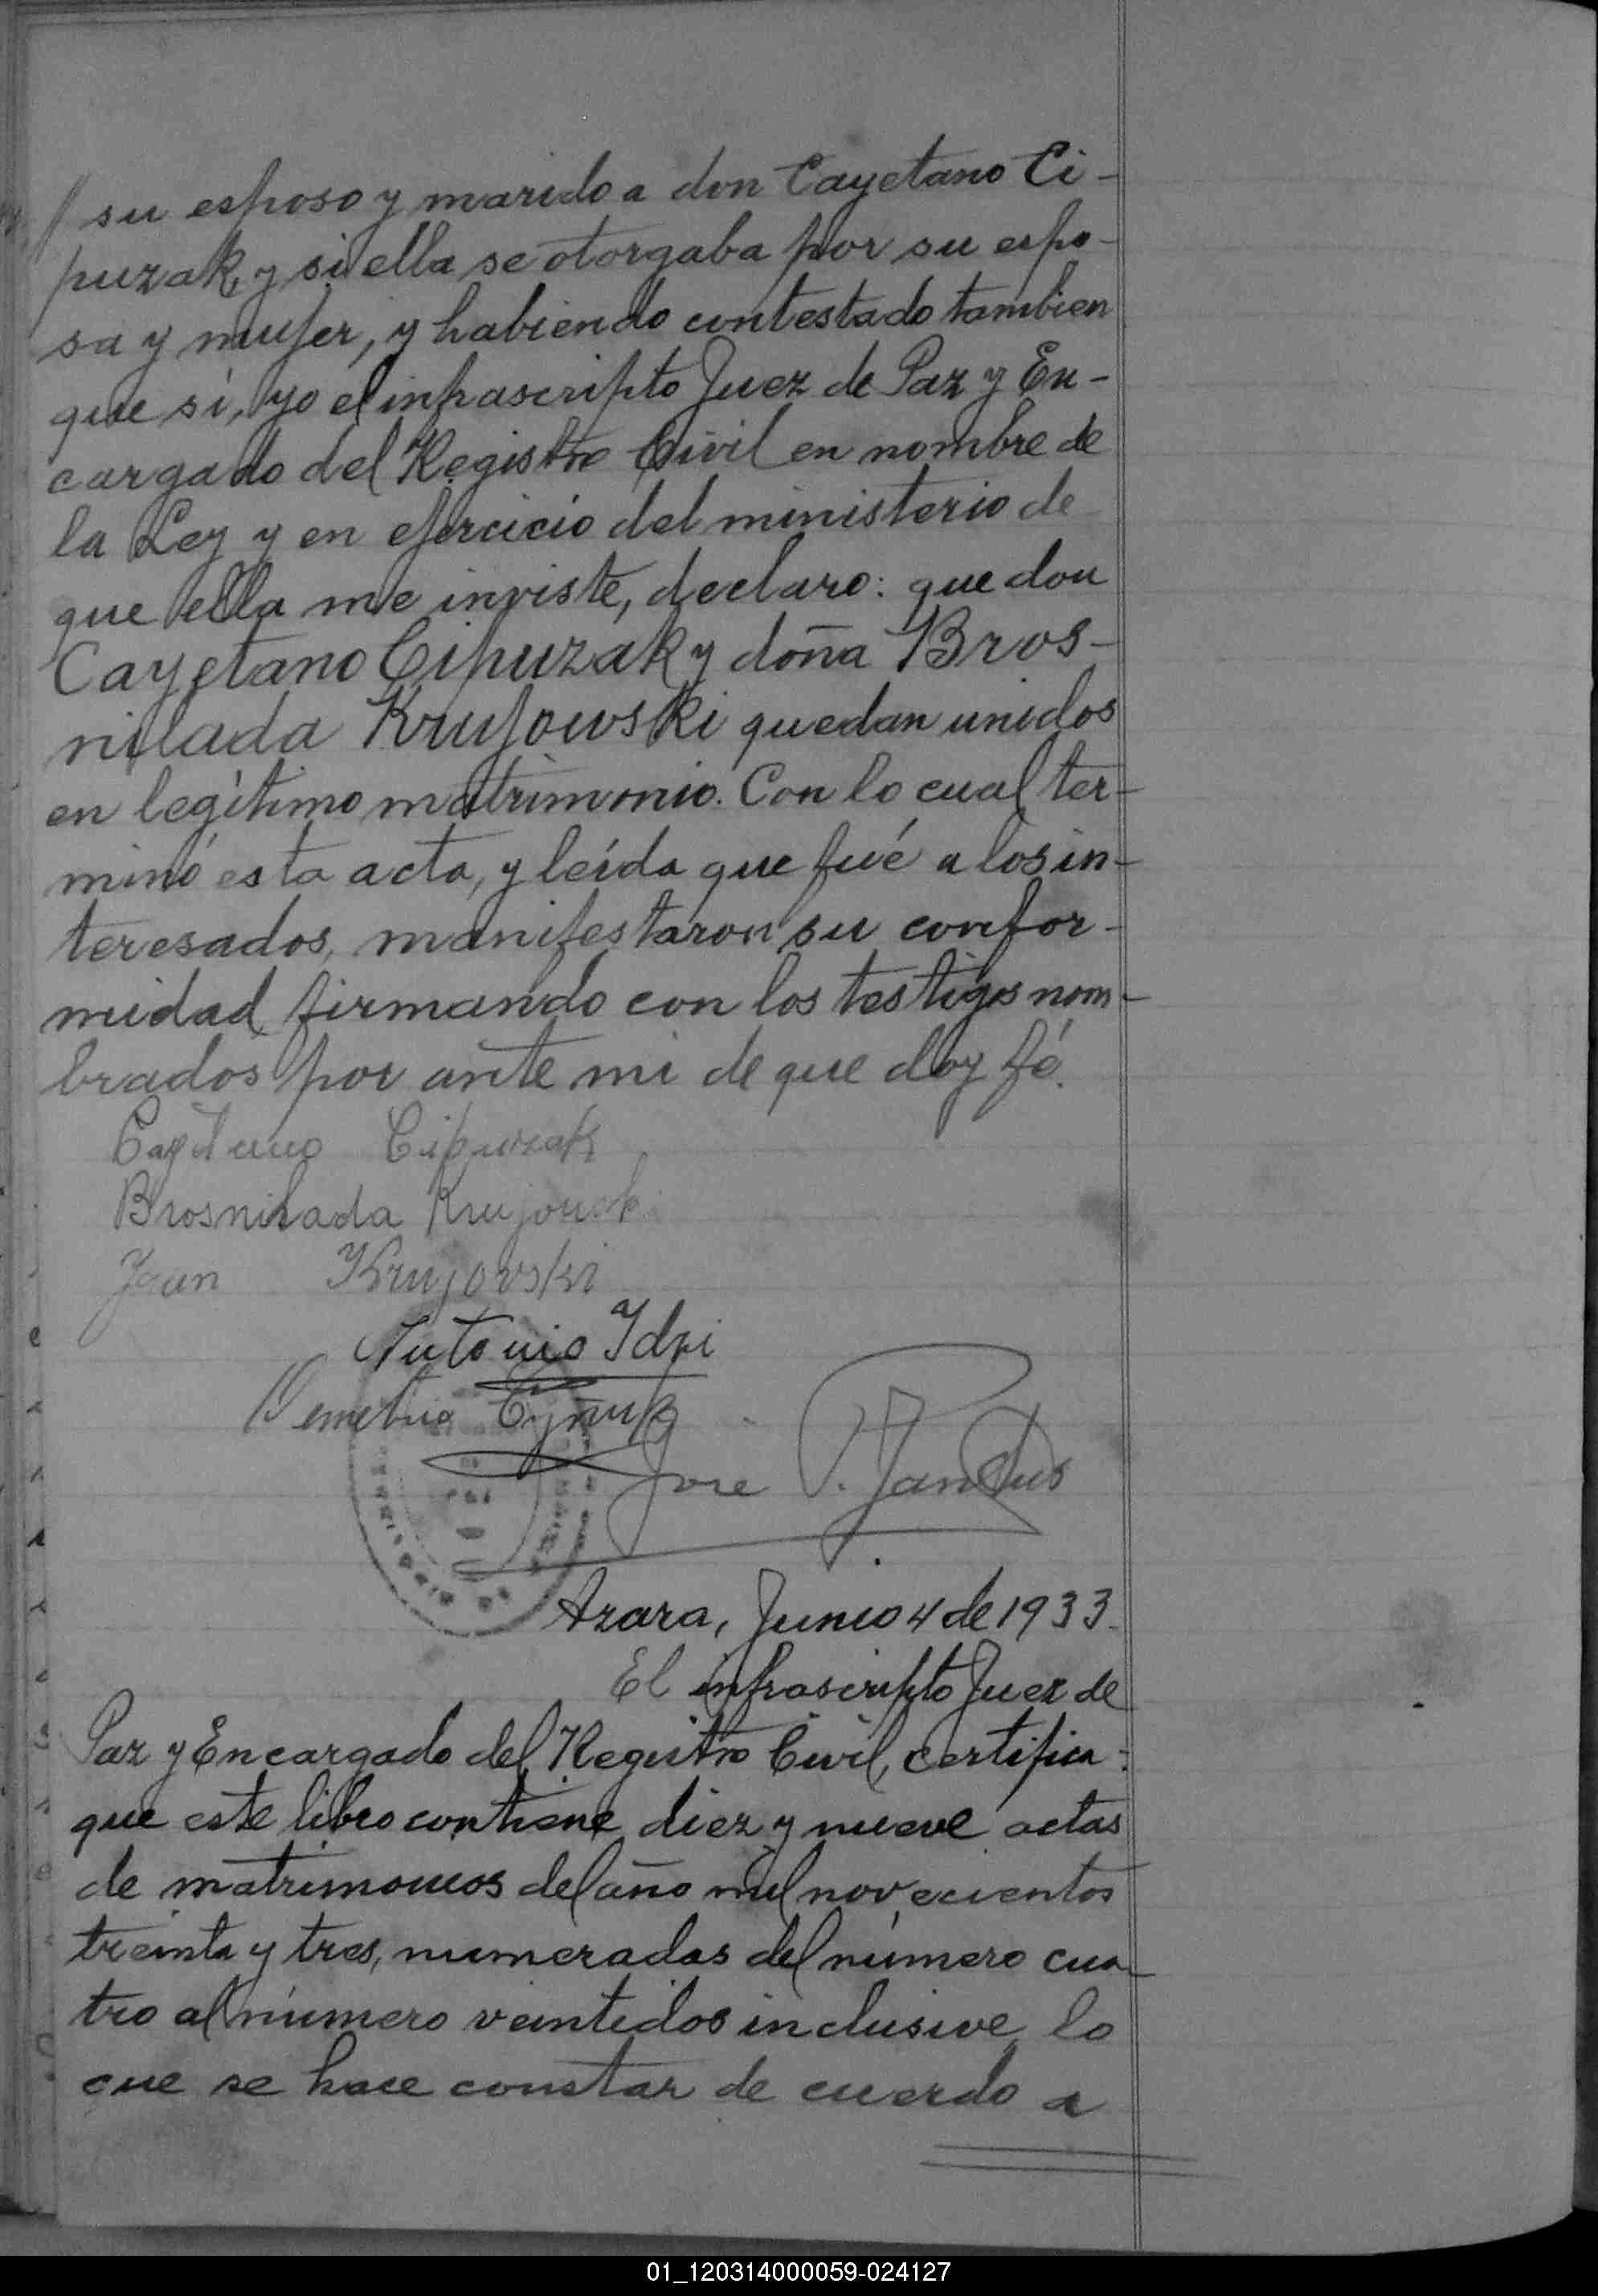 // su esposo y marido a don Cayetano Ci-
puzak, y si ella se otorgaba por su espo-
sa y mujer, y habiendo contestado tambien
que sí, yo el infrascripto Juez de Paz y En-
cargado del Registro Civil en nombre de
la Ley y en ejercicio del ministerio de
que ella me inviste, declaro: que don
Cayetano Cipuzak y doña Bros-
nilada Krujowski quedan unidos
en legítimo matrimonio. Con lo cual ter-
minó esta acta, y leída que fué a los in-
teresados, manifestaron su confor-
midad firmando con los testigos nom-
brados por ante mi de que doy fé.
Cayetano Cipuzak
Brosnilada Krujouski
Jaun Krujovski
Antonio
Demetrio
Jose
Azara, Junio 4 de 1933.
El infrascripto Juez de
Paz y Encargado del Registro Civil, certifica:
que este libro contiene diez y nueve actas
de matrimonios del año mil novecientos
treinta y tres, numeradas del número cua-
tro al número veintidos inclusive, lo
que se hace constar de cuerdo a
01_120314000059-024127